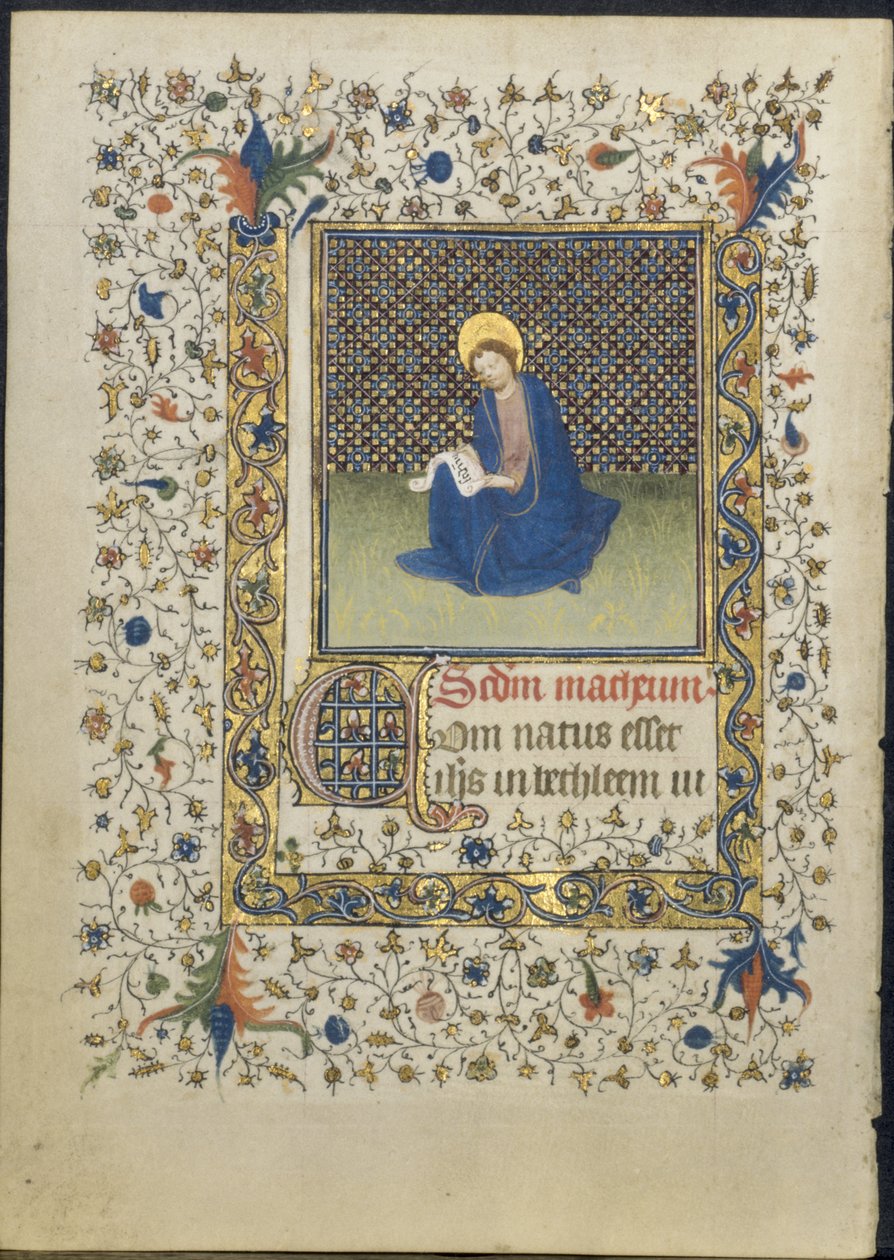 Scdm matheum.
Com natus esset
ihs in bethleem iu